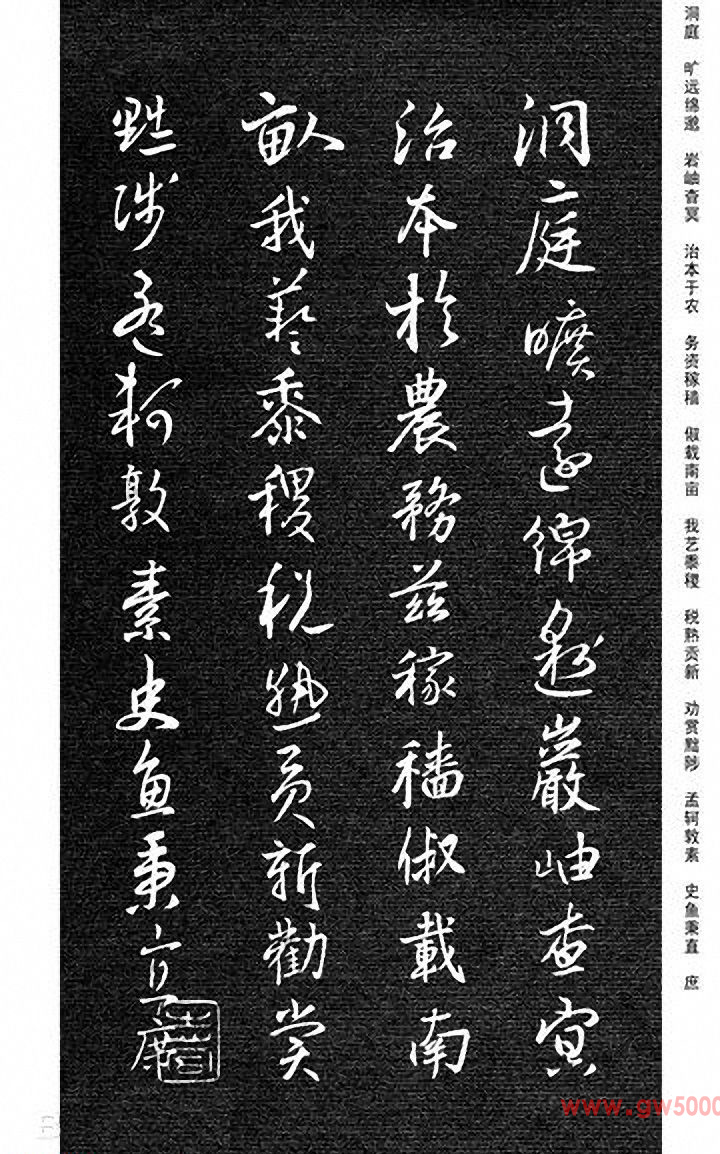 洞庭曠遠綿邈巖岫杳冥
治本於農務茲稼穡俶載南
畝我藝黍稷稅熟貢新勸賞
黜陟孟軻敦素史魚秉直庶
洞庭 旷远绵邈 岩岫杳冥 治本于农 务资稼穑 俶载南亩 我艺黍稷 税熟贡新 劝赏黜陟 孟轲敦素 史鱼秉直 庶
www.gw5000